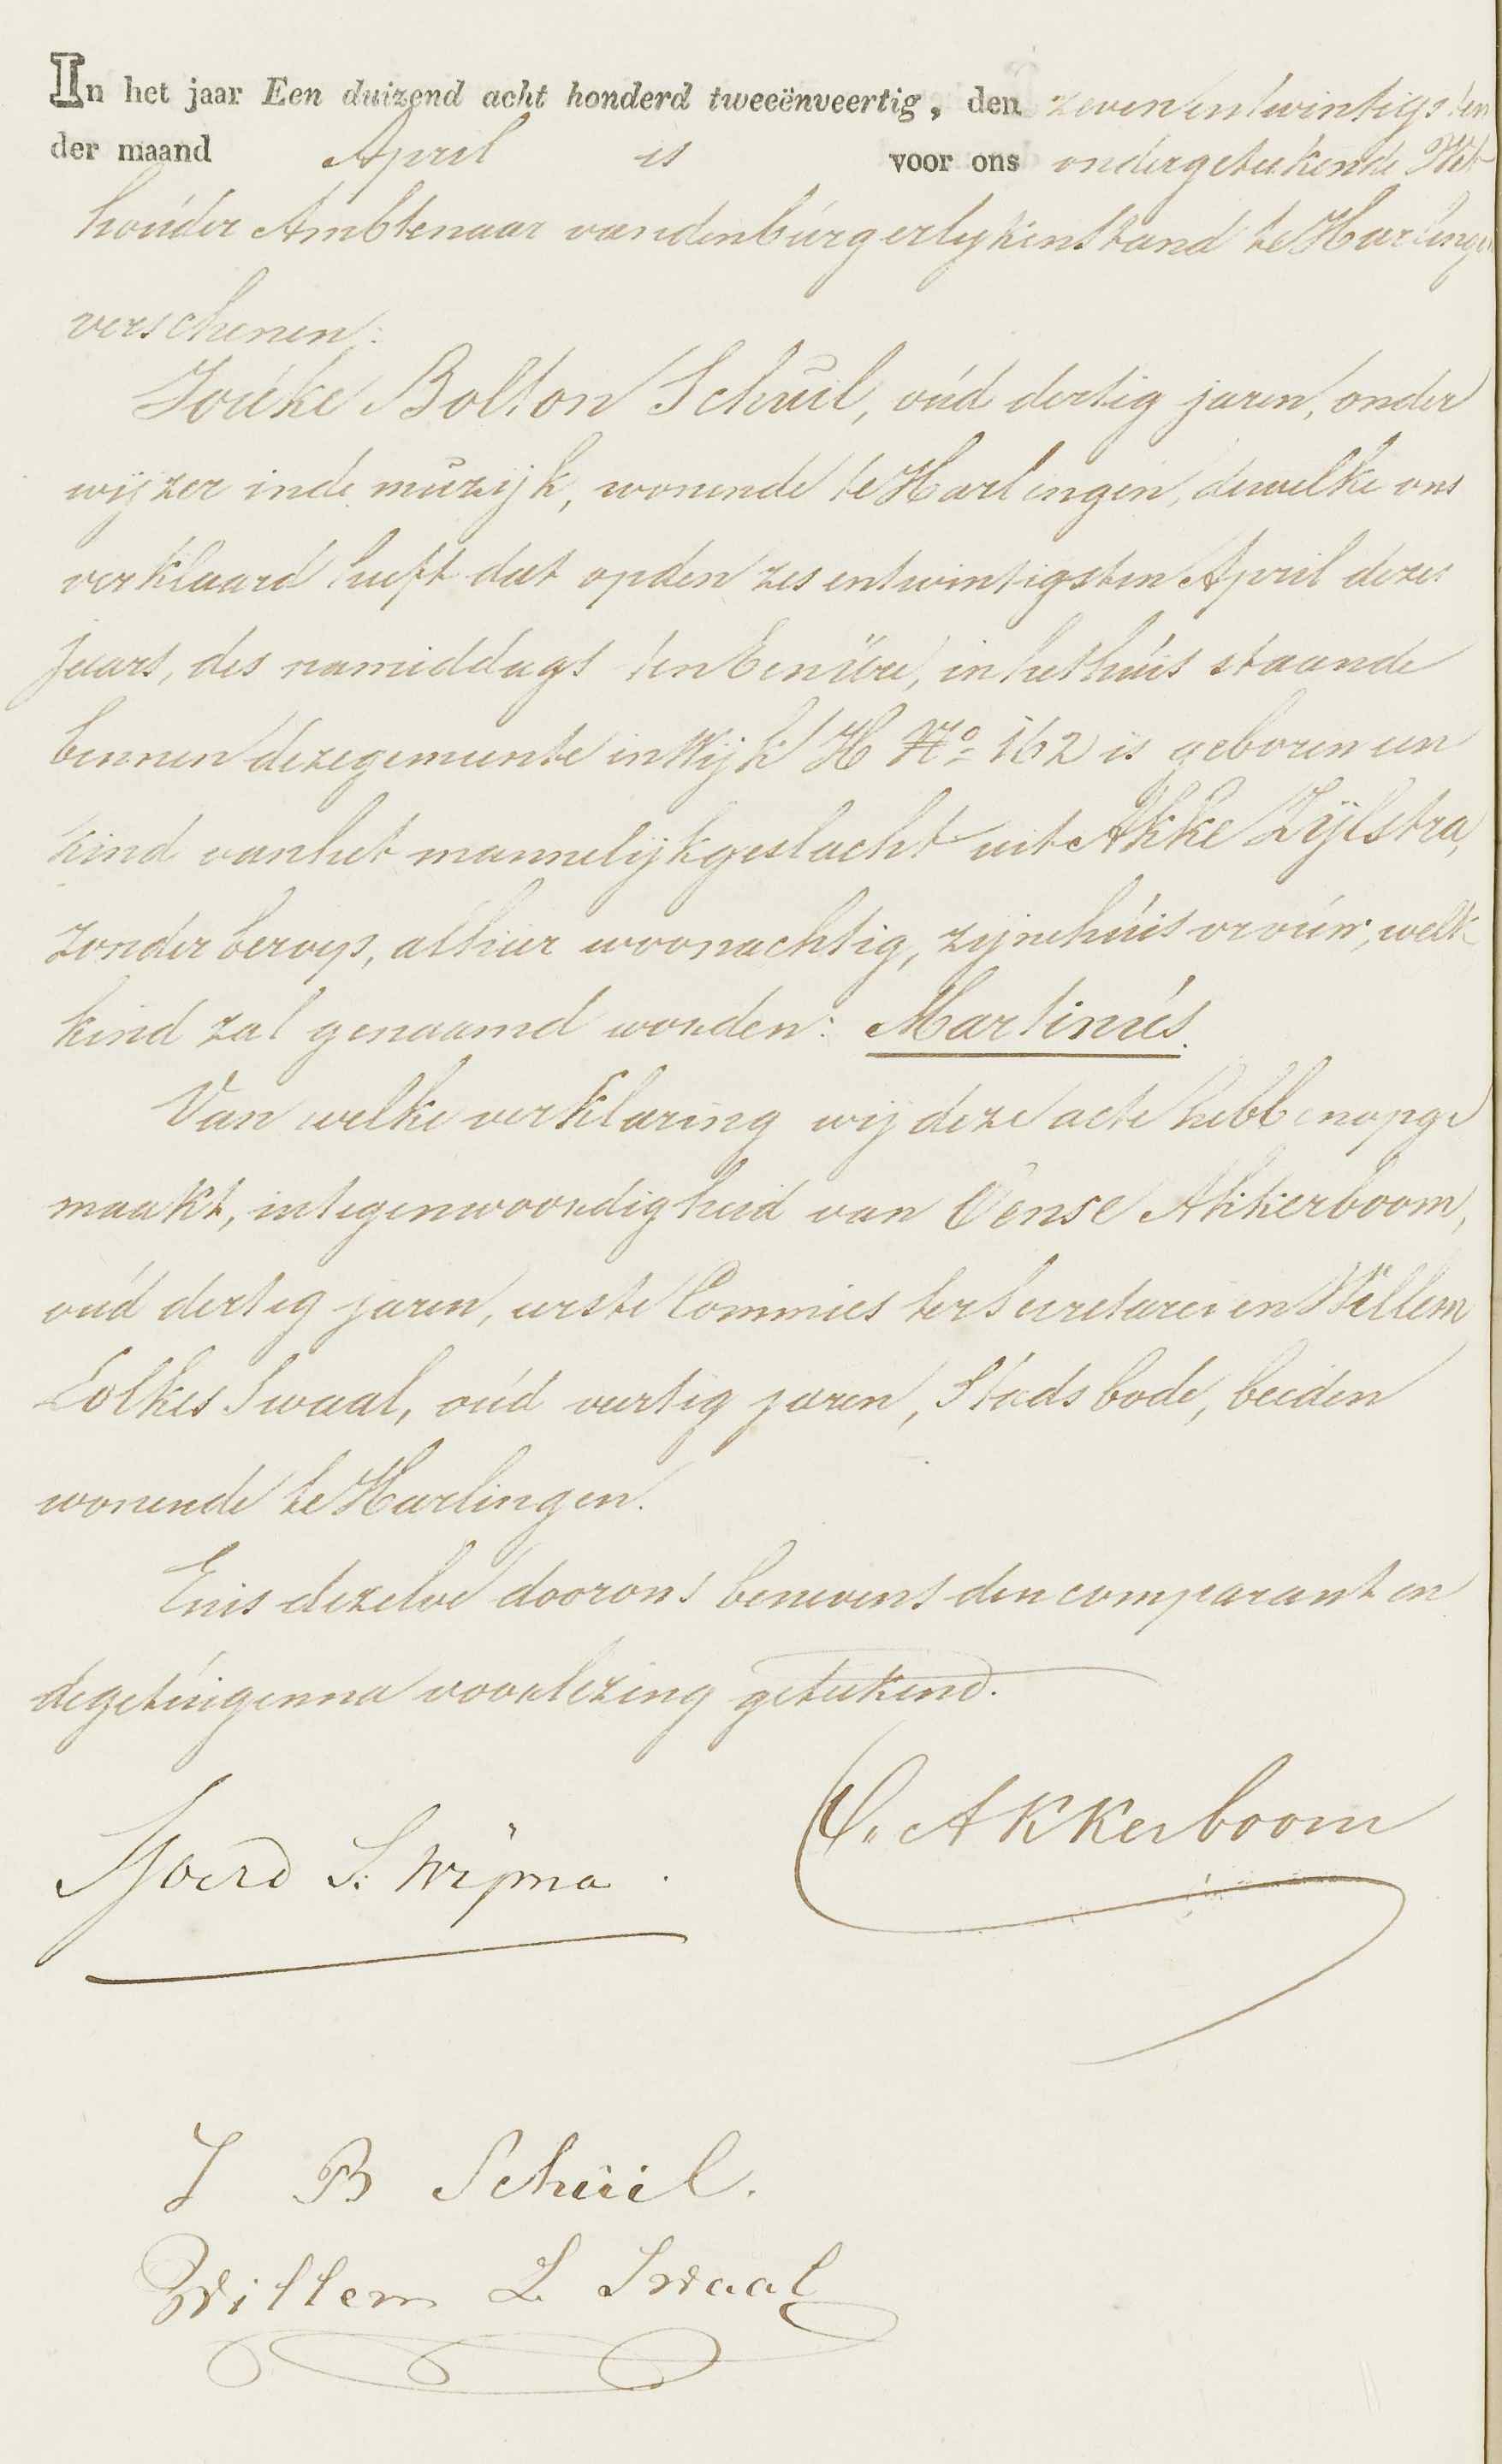 In het jaar Een duizend acht honderd tweeënveertig, den zevenentwintigsten
der maand April is voor ons ondergeteekende Wet
houder Ambtenaar van den burgerlyken stand te Harlingen
verschenen:
Jouke Bolton Schuil, oud dertig jaren, onder
wijzer in de muzijk, wonende te Harlingen, dewelke ons
verklaard heeft dat op den zesentwintigsten April dezes
jaars, des namiddags ten Een üre, in het huis staande
binnen deze gemeente in Wijk H No 162 is geboren een
kind van het mannelijk geslacht uit Akke Zijlstra,
zonder beroep, alhier woonachtig, zijne huisvrouw, welk
kind zal genaamd worden: Martinus.
Van welke verklaring wij deze acte hebben opge
maakt, in tegenwoordigheid van Oense Akkerboom,
oud dertig jaren, eerste Commies ter Secretarie en Willem
Lolkes Swaal, oud veertig jaren, Stads bode, beiden
wonende te Harlingen.
En is dezelve door ons benevens den comparant en
de getuigen na voorlezing geteekend.
Sjoerd S. Wijma.
O. Akkerboom
J B Schuil.
Willem L Swaal